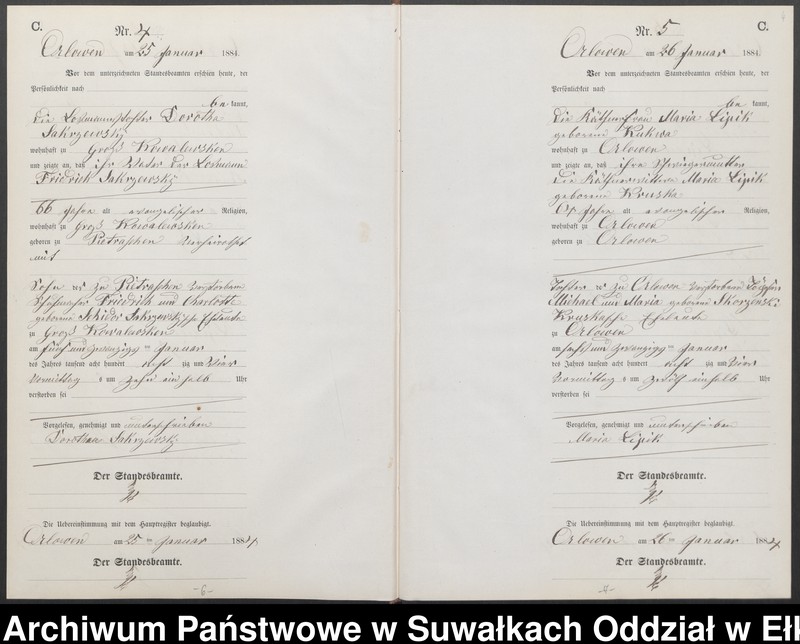 C.
Nr. 4
Orlowen am 25 Januar 1884.
Vor dem unterzeichneten Standesbeamten erschien heute, der
Persönlichkeit nach
bekannt,
die Losmannstochter Dorothea
Sakrzewsky
wohnhaft zu Groß Kowalewsken
und zeigte an, daß ihr Vater der Losmann
Fridrich Sakrzewsky
66 Jahre alt evangelischer Religion,
wohnhaft zu Groß Kowalewsken
geboren zu Pietraschen verheirathet
mit
Sohn der zu Pietraschen verstorbenen
Friedrich und Charlotte
geborene Sakrzewsky'sche Eheleute
zu Groß Kowalewsken
am fünf und zwanzigsten Januar
des Jahres tausend acht hundert acht zig und vier
Vormittag s um zehn ein halb Uhr
verstorben sei
Vorgelesen, genehmigt und unterschrieben
Dorothea Sakrzewsky
Der Standesbeamte.
Die Uebereinstimmung mit dem Hauptregister beglaubigt.
Orlowen am 25 ten Januar 1884
Der Standesbeamte.
-6-
Nr. 5
C.
Orlowen am 26 Januar 1884.
Vor dem unterzeichneten Standesbeamten erschien heute, der
Persönlichkeit nach
bekannt,
die Käthnerfrau Maria Lipik
geborene Kukwa
wohnhaft zu Orlowen
und zeigte an, daß ihre Schwiegermutter
die Käthnerwittwe Maria Lipik
geborene Kruska
Jahre alt evangelischer Religion,
wohnhaft zu Orlowen
geboren zu Orlowen
Tochter der zu Orlowen verstorbenen
Michael und Maria geborene Skorzewski
Kruskasche Eheleute
zu Orlowen
am sechs und zwanzigsten Januar
des Jahres tausend acht hundert acht zig und vier
Vormittag s um zwölf einhalb Uhr
verstorben sei
Vorgelesen, genehmigt und unterschrieben
Maria Lipik
Der Standesbeamte.
Die Uebereinstimmung mit dem Hauptregister beglaubigt.
Orlowen am 26 ten Januar 1884
Der Standesbeamte.
-7-
Archiwum Państwowe w Suwałkach Oddział w Eł